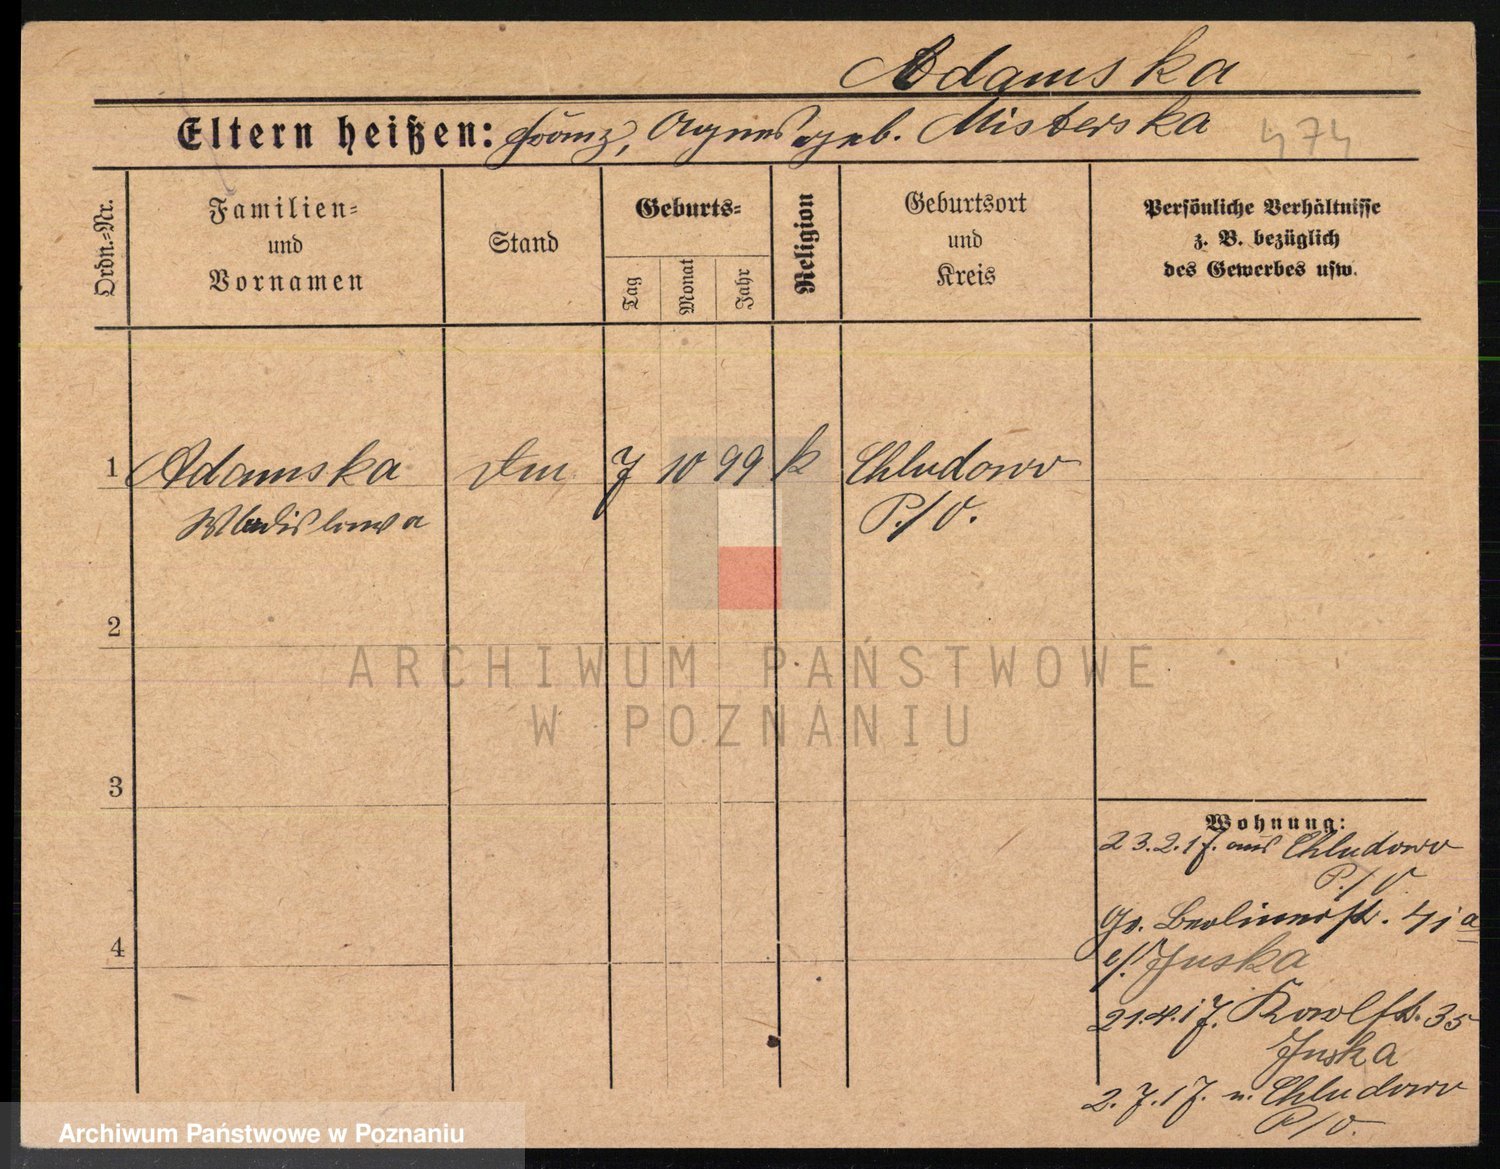 Adamska
Eltern heißen: Franz, Agnes geb. Misterska
474
Ordn.-Nr.
Familien-
und
Vornamen
Stand
Geburts-
Tag
Monat
Jahr
Religion
Geburtsort
und
Kreis
Persönliche Verhältnisse
z. B. bezüglich
des Gewerbes usw.
1 Adamska 7 10 99 k Chludowo
Wladislawa P./O.
2
3
4
Wohnung:
23.2.17. aus Chludowo
P./O.
Gr. Berlinerstr. 41a
b/. Juska
21.4.17. Karlstr. 35
Juska
2.7.17. n. Chludowo
P/O.
ARCHIWUM PAŃSTWOWE
W POZNANIU
Archiwum Państwowe w Poznaniu